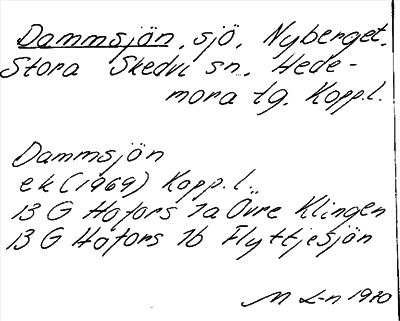 Dammsjön, sjö, Nyberget,
Stora Skedvi sn, Hede-
mora tg. Koppl.
Dammsjön
ek (1969) Koppl.
13 G Hofors 7a Övre Klingen
13 G Hofors 7b Flyttjesjön
M L-n 1970